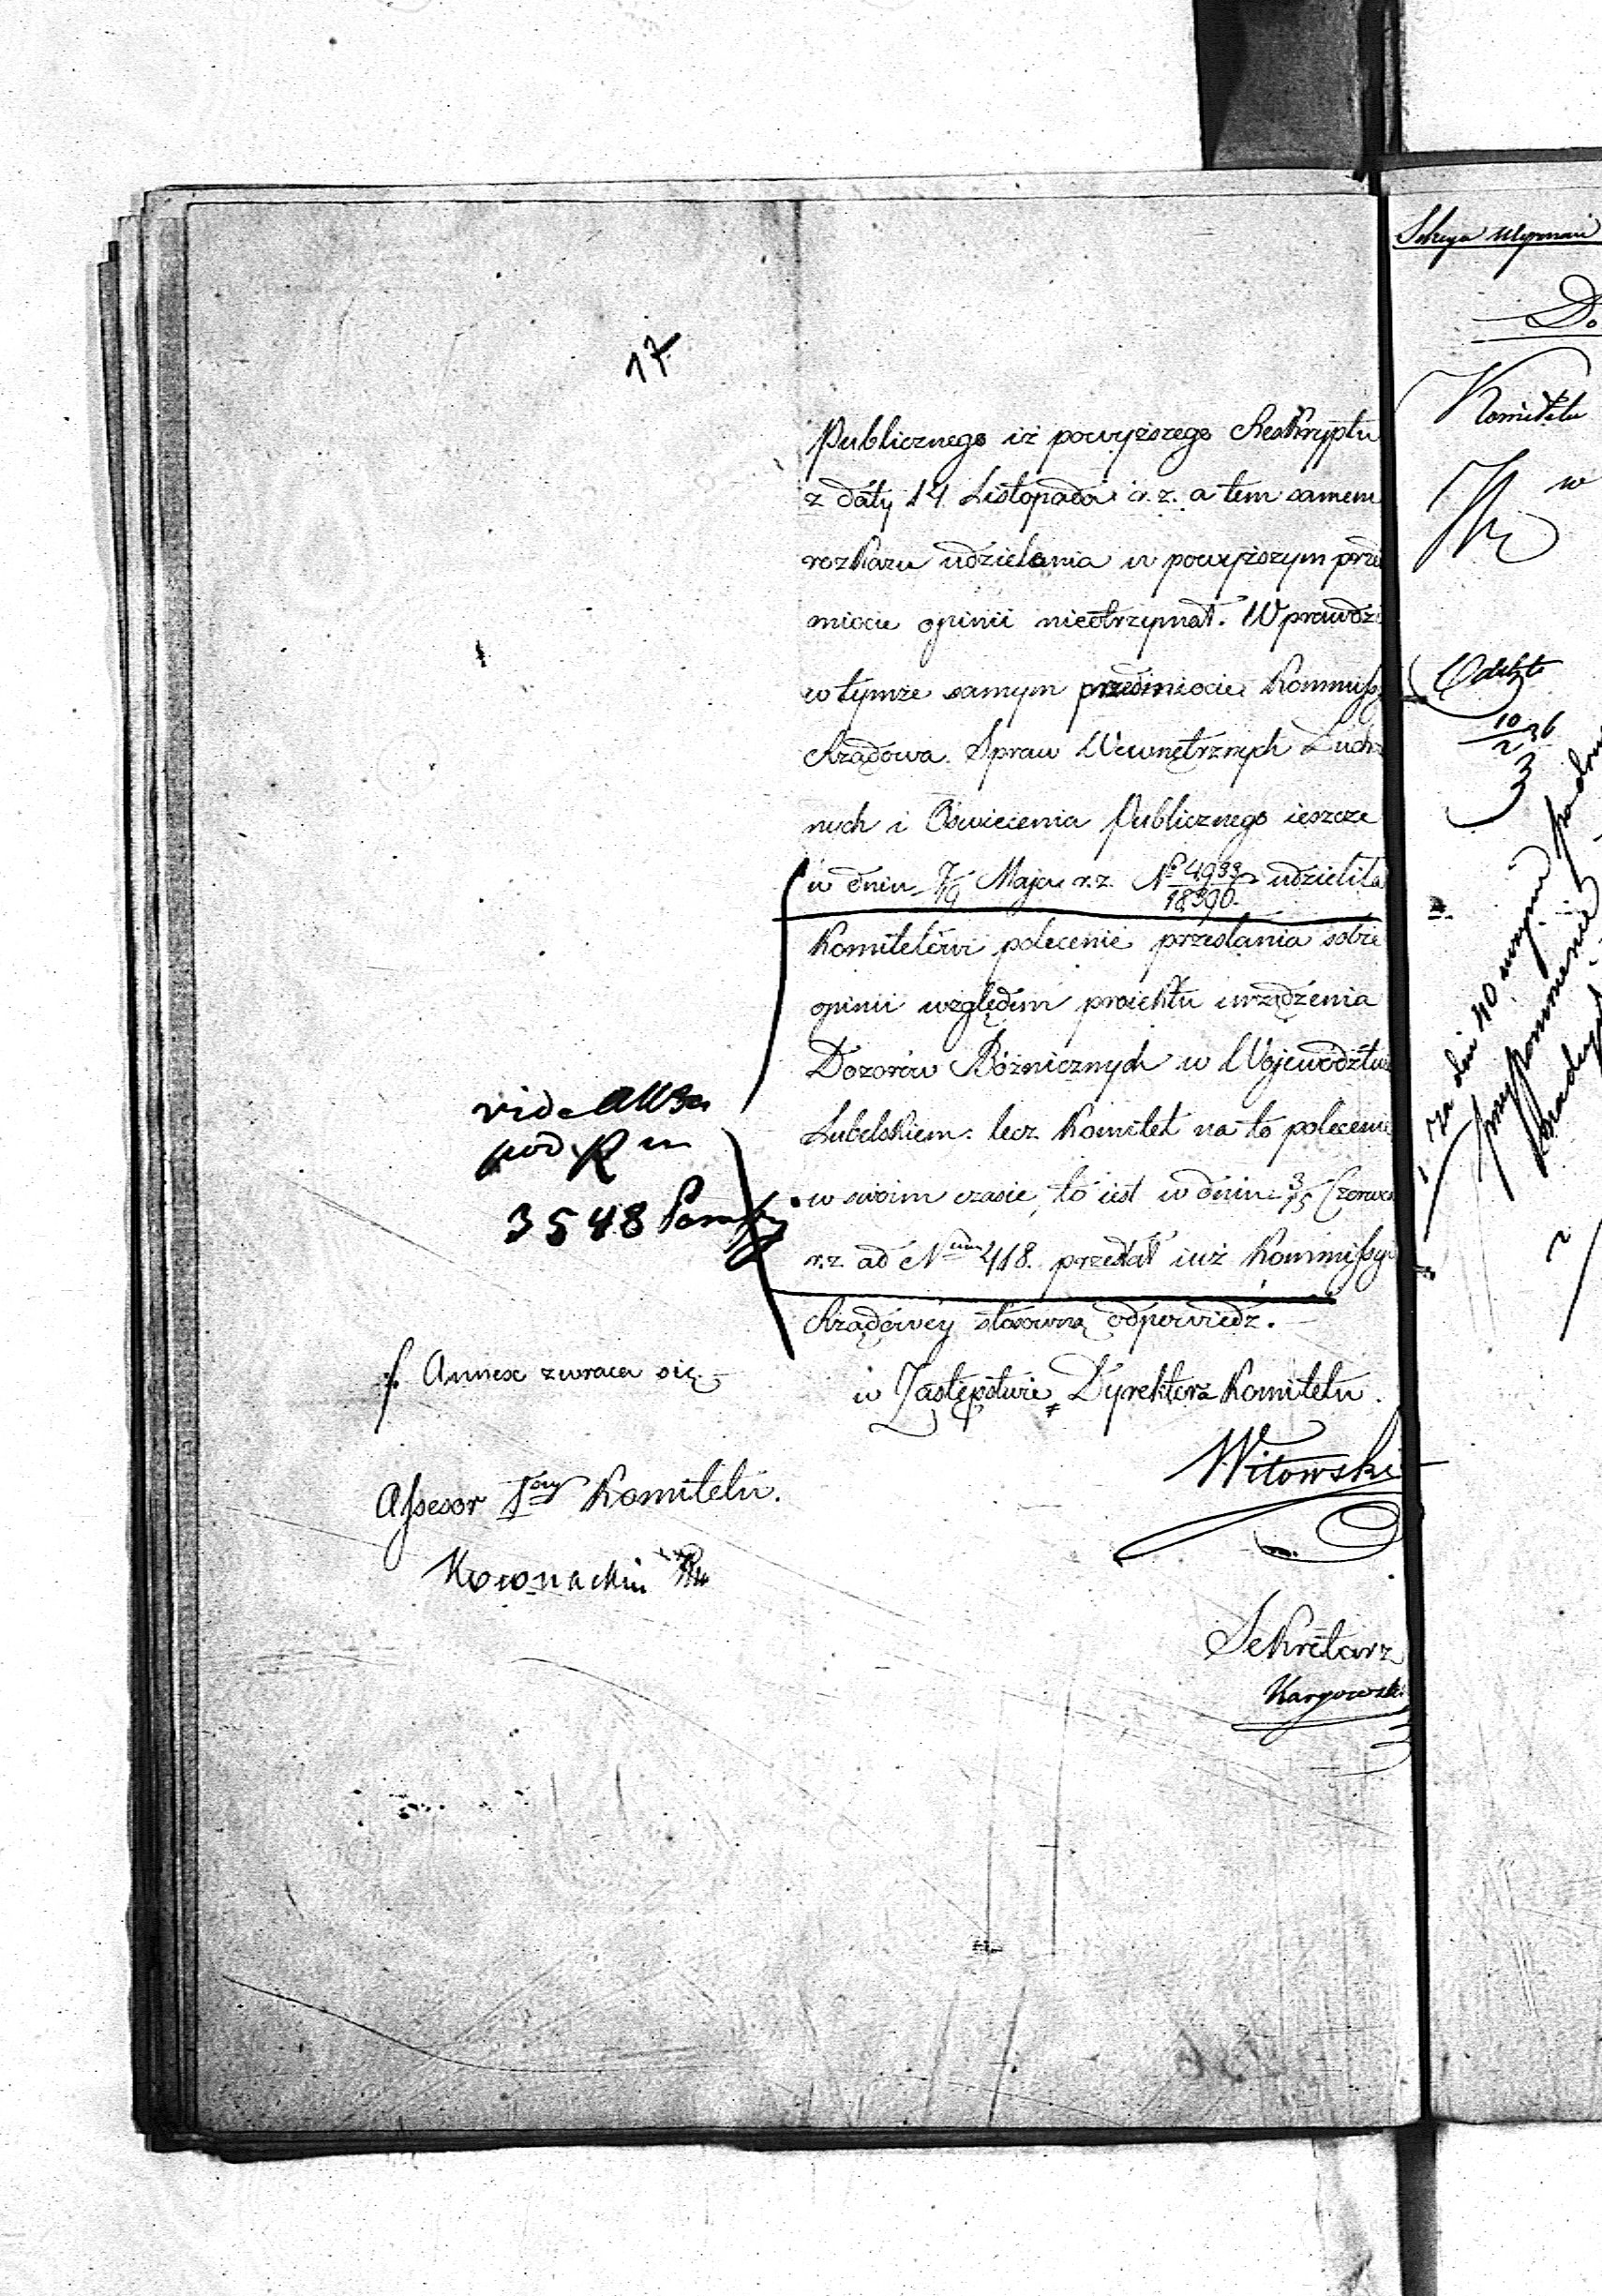 17
Publicznego iż powyższego Reskryptu
z daty 14 Listopada r.z. a tem samem
rozkazu udzielania w powyższym prze
miocie opinii nieotrzymał. Wprawdzi
w tymże samym przedmiocie Kommissy
Rządowa Spraw Wewnętrznych Duch
nych i Oświecenia Publicznego ieszcze
w dniu 7/19 Maja r.z. No 4933/18390 udzieliła
Komitetowi polecenie przesłania sobie
opinii względem proiektu urządzenia
Dozorów Bóżnicznych w Województwie
Lubelskiem. lecz Komitet na to polecenie
w swoim czasie, to iest w dniu 3/15 Czerwca
r.z. ad Num 418. przesłał iuż Kommissyi
Rządowey stosowną odpowiedź.
w Zastępstwie Dyrektora Komitetu.
Witowski
Sekretarz
vide akta
pod R
3548
Annex zwraca się
Assesor 1szy Komitetu.
Do
Komitetu
w
10
2 36
za dni 40
przypomnienie